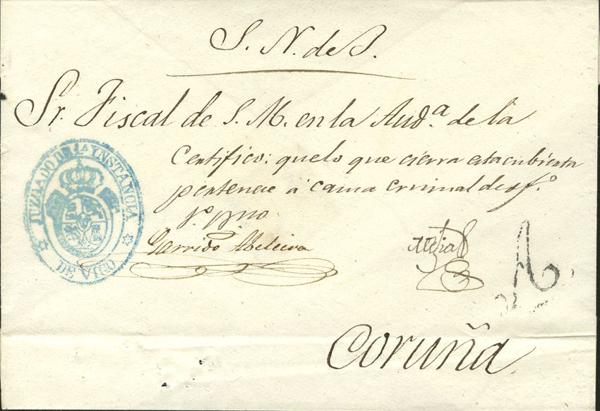 S. N. de S.
Sr. Fiscal de S. M. en la Aud.ª de la
Certifico: que lo que cierra esta cubierta
pertenece á causa criminal de
JUZGADO DE 1ª YNSTANCIA
DE VIGO
Garrido
Coruña